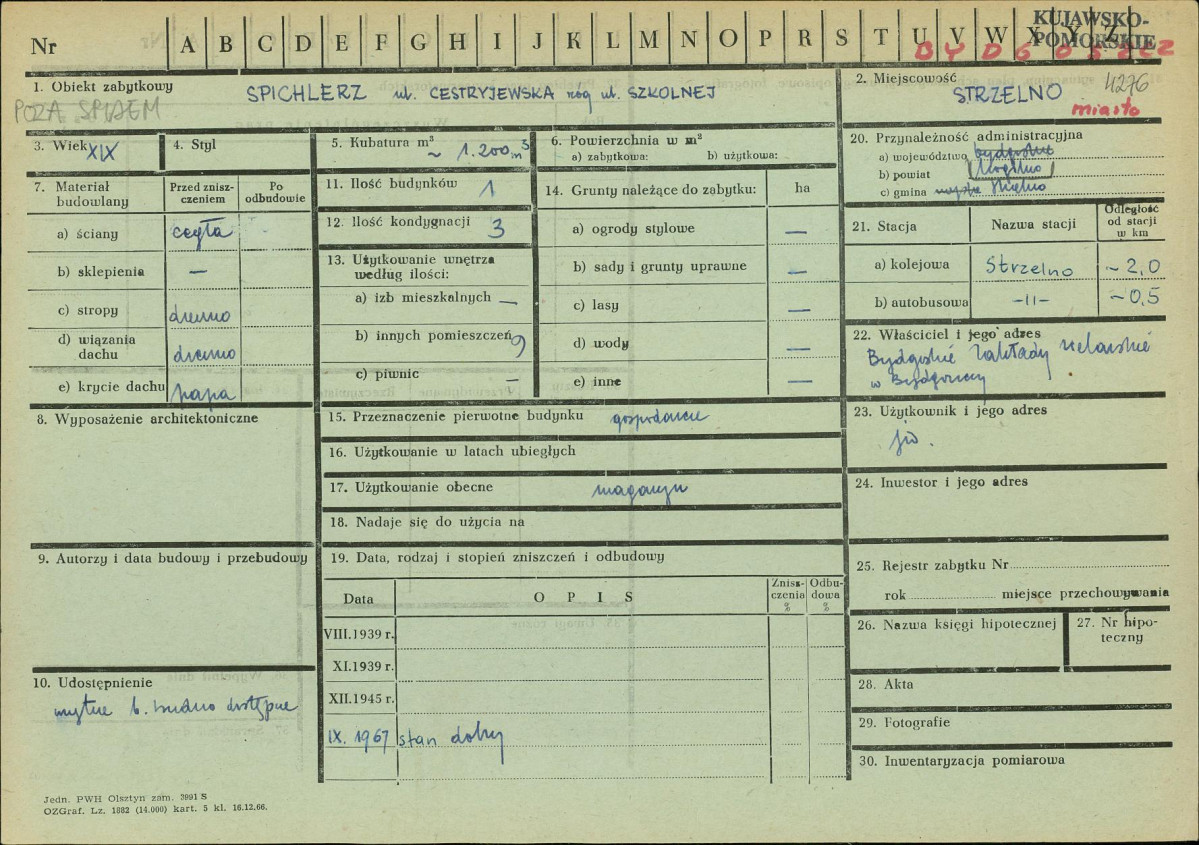 Nr A B C D E F G H I J K L M N O P R S T U V W X Y Z
KUJAWSKO-
POMORSKIE
BYDGOSZCZ
1. Obiekt zabytkowy SPICHLERZ ul. CESTRYJEWSKA róg ul. SZKOLNEJ
POZA SPISEM
2. Miejscowość 4276
STRZELNO
miasto
3. Wiek XIX
4. Styl
5. Kubatura m³ ~ 1.200 m³
6. Powierzchnia w m²
a) zabytkowa: b) użytkowa:
7. Materiał budowlany
Przed zniszczeniem
Po odbudowie
a) ściany cegła
b) sklepienia —
c) stropy drewno
d) wiązania dachu drewno
e) krycie dachu papa
8. Wyposażenie architektoniczne
9. Autorzy i data budowy i przebudowy
10. Udostępnienie
wnętrze b. trudno dostępne
11. Ilość budynków 1
12. Ilość kondygnacji 3
13. Użytkowanie wnętrza
według ilości:
a) izb mieszkalnych —
b) innych pomieszczeń 9
c) piwnic —
14. Grunty należące do zabytku: ha
a) ogrody stylowe —
b) sady i grunty uprawne —
c) lasy —
d) wody —
e) inne —
15. Przeznaczenie pierwotne budynku gospodarcze
16. Użytkowanie w latach ubiegłych
17. Użytkowanie obecne magazyn
18. Nadaje się do użycia na
19. Data, rodzaj i stopień zniszczeń i odbudowy
Data OPIS Zniszczenia % Odbudowa %
VIII.1939 r.
XI.1939 r.
XII.1945 r.
IX. 1967 stan dobry
20. Przynależność administracyjna
a) województwo bydgoskie
b) powiat Mogilno
c) gmina Strzelno
21. Stacja Nazwa stacji Odległość od stacji w km
a) kolejowa Strzelno ~ 2,0
b) autobusowa -II- ~ 0,5
22. Właściciel i jego adres
Bydgoskie Zakłady Zielarskie
w Bydgoszczy
23. Użytkownik i jego adres
jw.
24. Inwestor i jego adres
25. Rejestr zabytku Nr
rok miejsce przechowywania
26. Nazwa księgi hipotecznej
27. Nr hipoteczny
28. Akta
29. Fotografie
30. Inwentaryzacja pomiarowa
Jedn. PWH Olsztyn zam. 3991 S
OZGraf. Lz. 1882 (14.000) kart. 5 kl. 16.12.66.